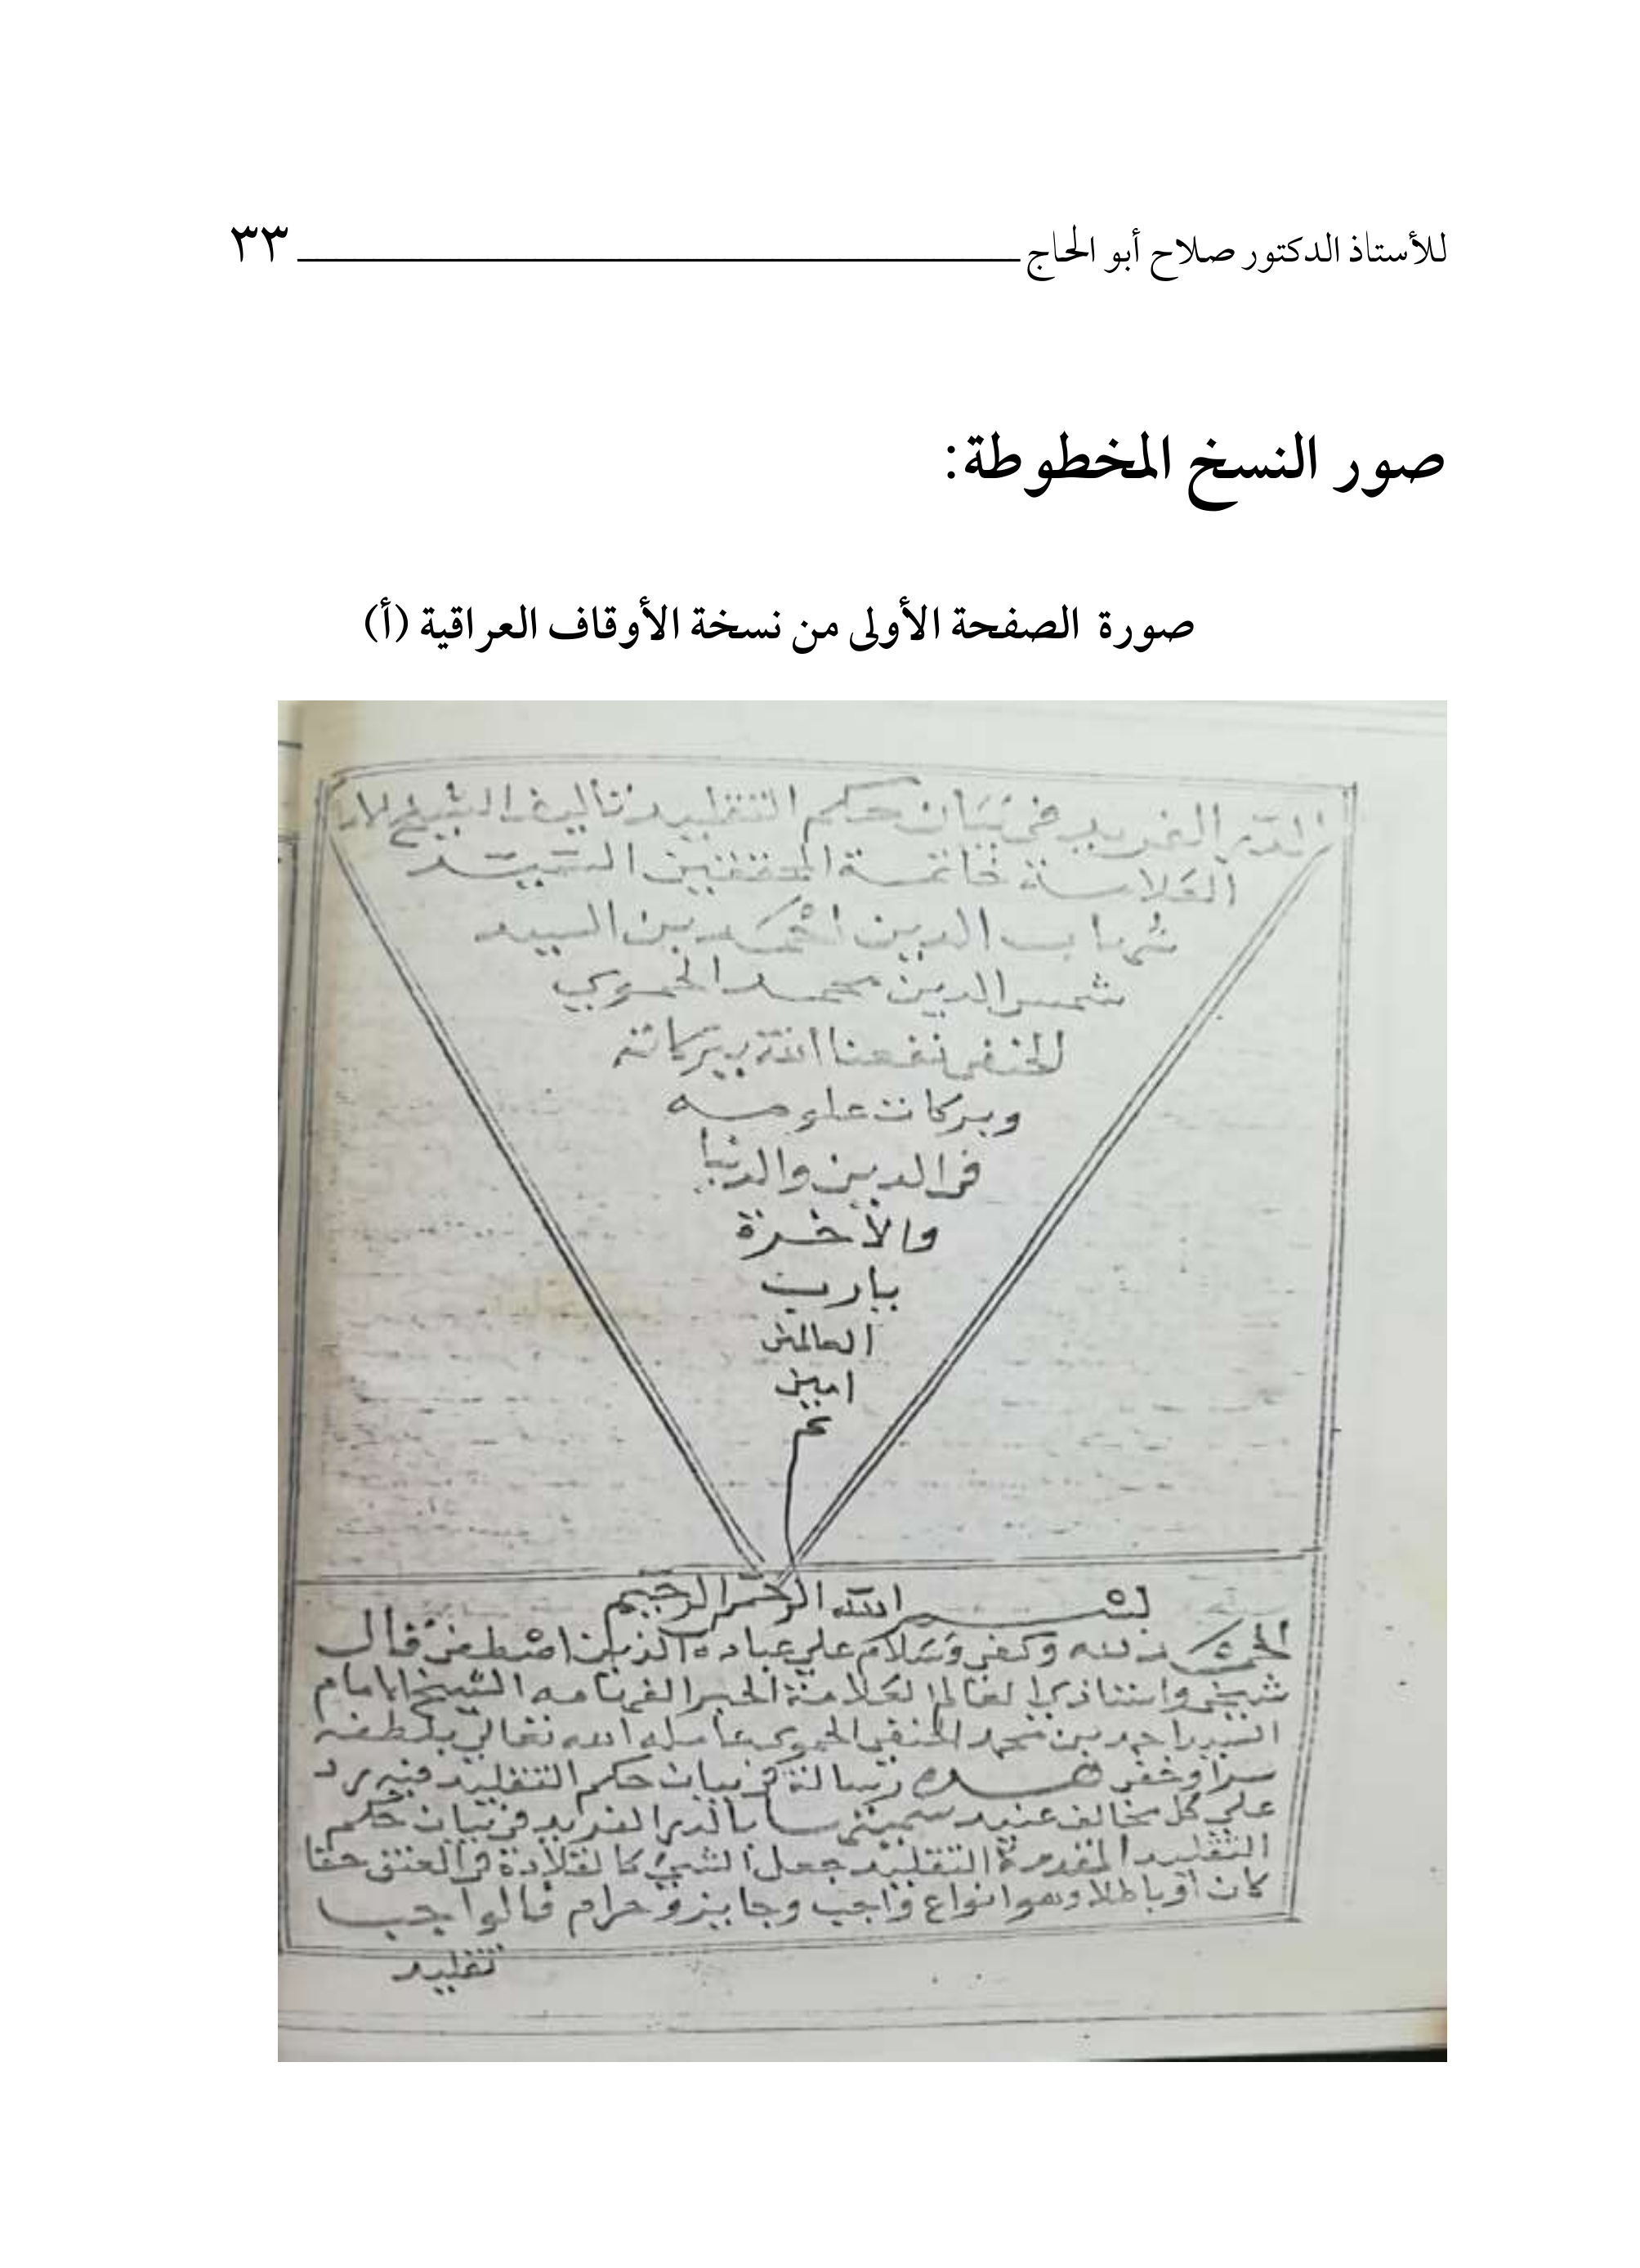 للأستاذ الدكتور صلاح أبو الحاج ٣٣
صور النسخ المخطوطة:
صورة الصفحة الأولى من نسخة الأوقاف العراقية (أ)
الدر الفريد في بيان حكم التقليد تأليف الشيخ
العلامة خاتمة المحققين السيد
شهاب الدين احمد بن السيد
شمس الدين محمد الحموي
الحنفي نفعنا الله ببركاته
وبركات علومه
في الدين والدنيا
والاخرة
يارب
العالمين
امين
بسم الله الرحمن الرحيم
الحمد لله وكفى وسلام على عباده الذين اصطفى قال
شيخي واستاذي العالم العلامة الحبر الفهامه الشيخ الامام
السيد احمد بن محمد الحنفي الحموي عامله الله تعالى بلطفه
سرا وخفي هذه رسالة في بيان حكم التقليد فيه رد
علي كل مخالف عنيد سميتها بالدر الفريد في بيان حكم
التقليد المقدمة التقليد جعل الشيء كالقلادة في العنق حقا
كان او باطلا وهو انواع واجب وجايز وحرام فالواجب
تقليد